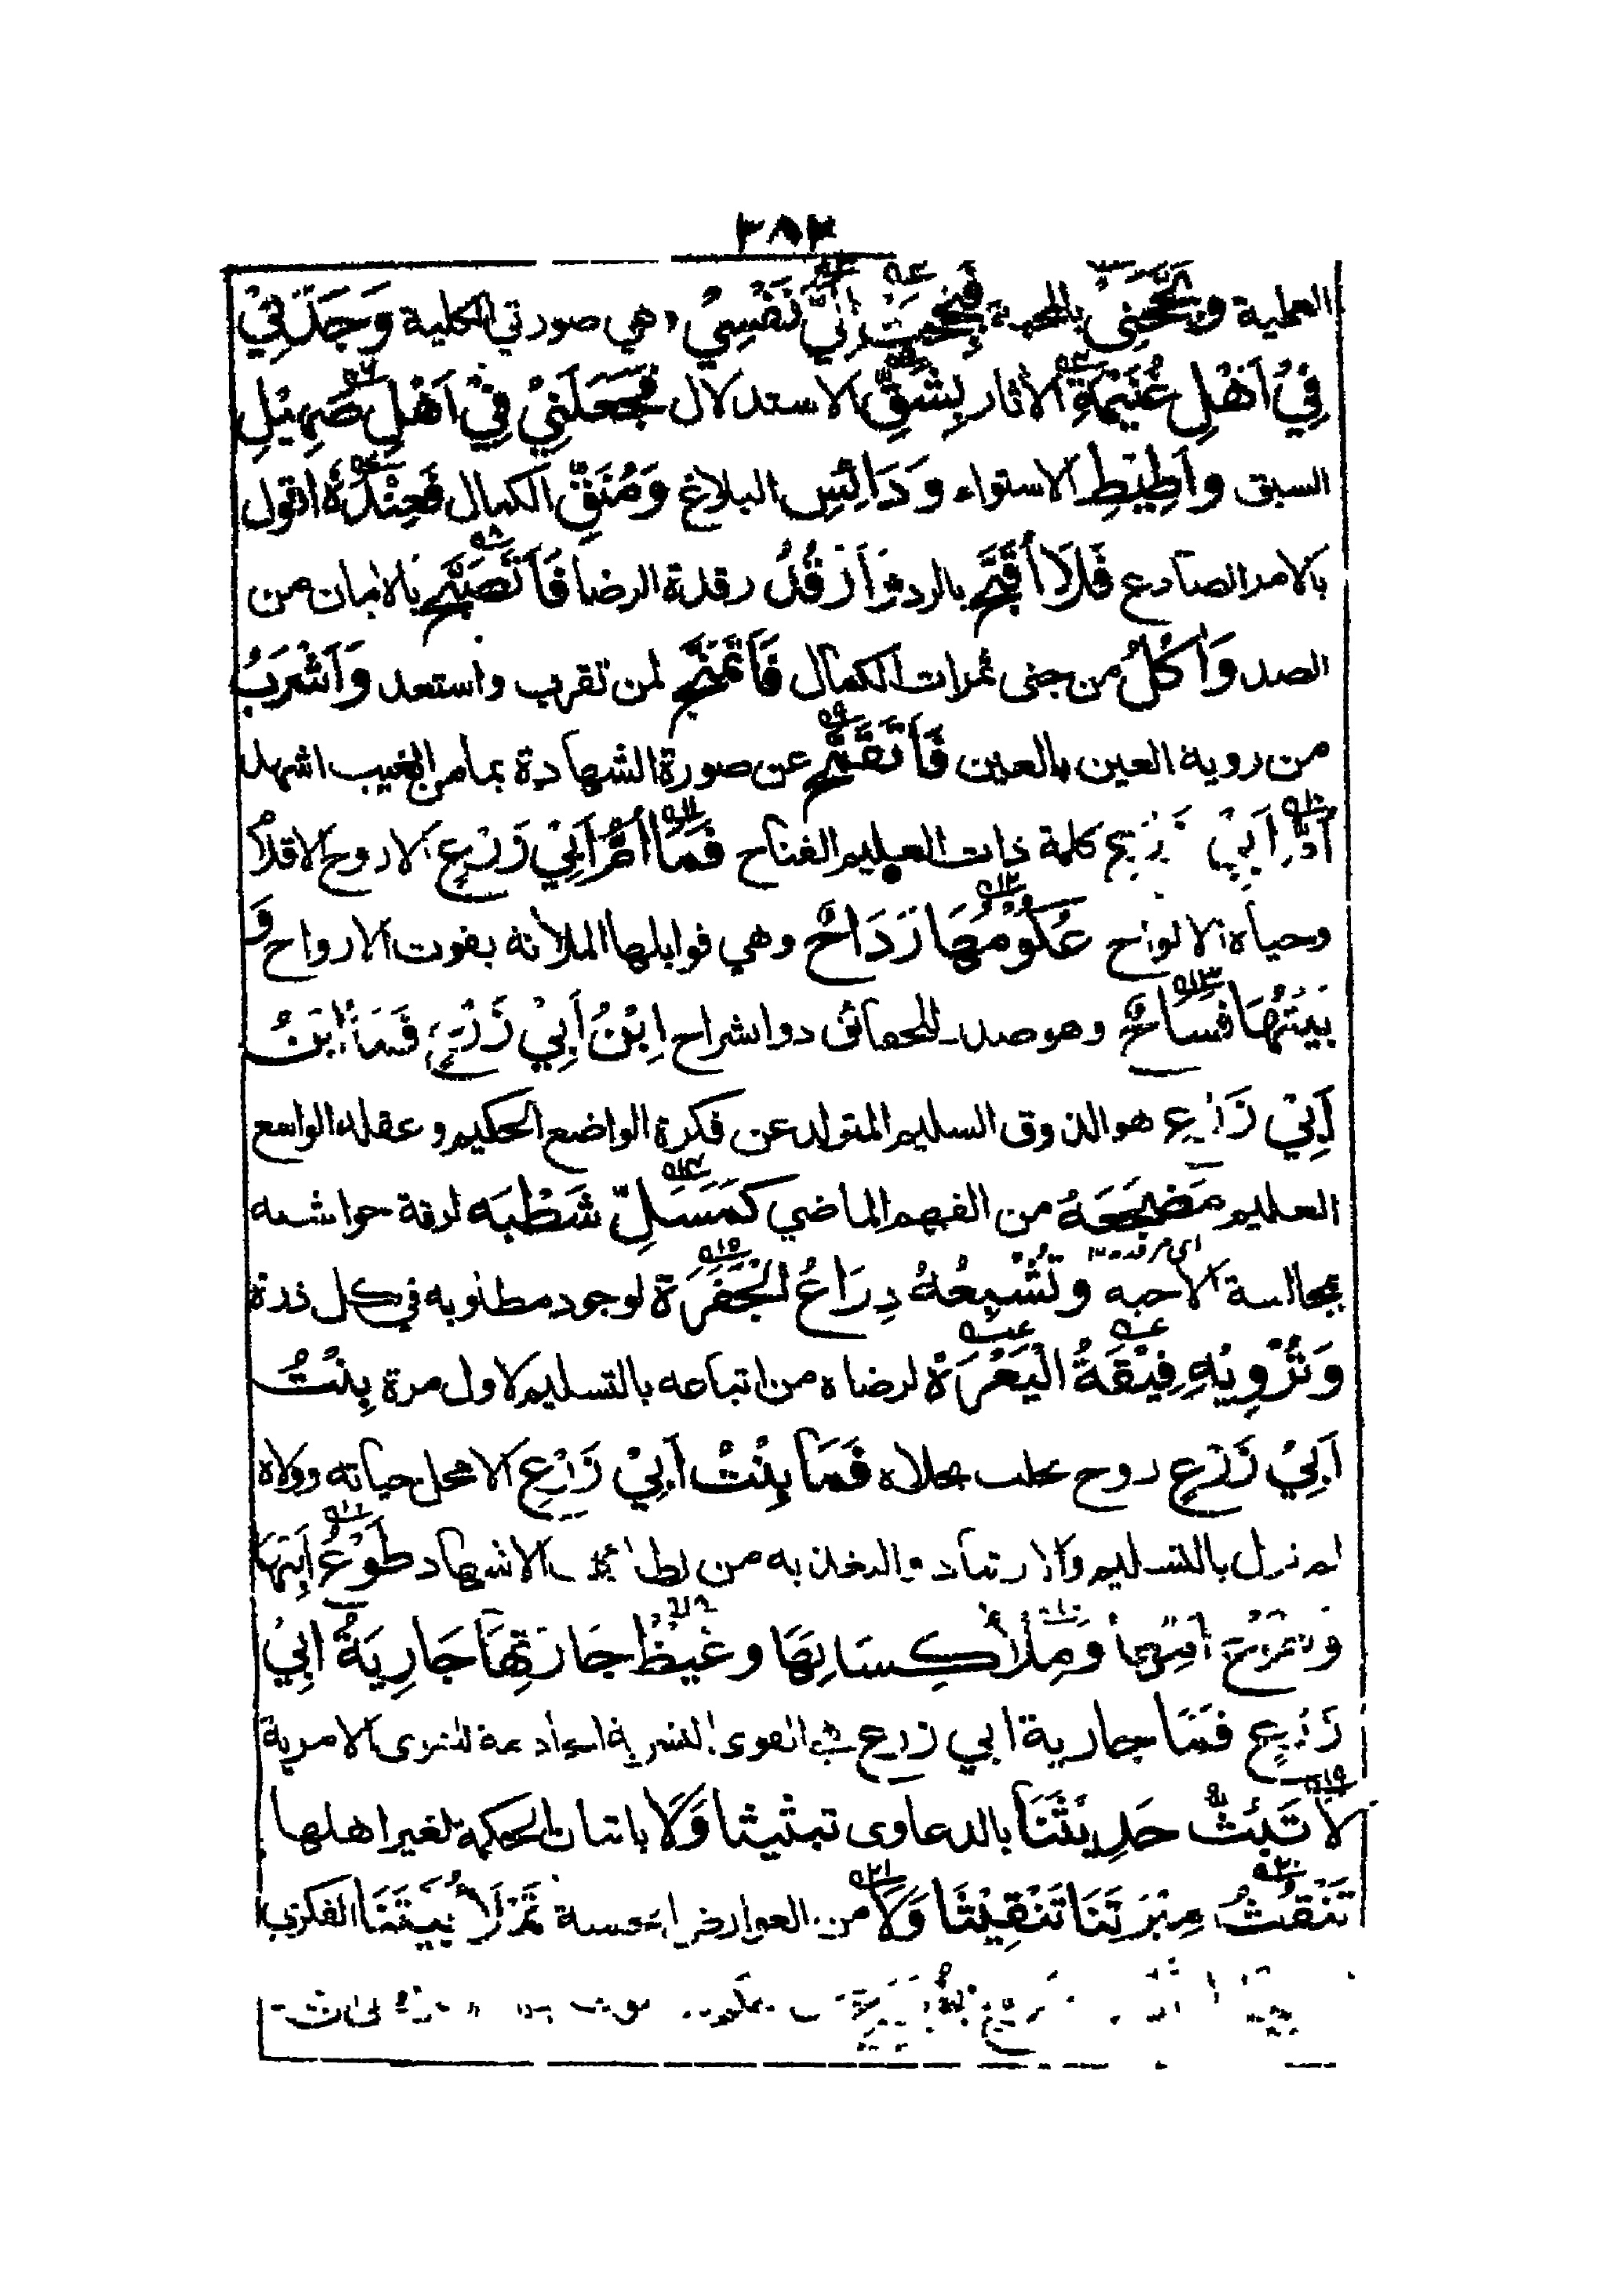 ٣٨٣
العملية وَبَجَّحَنِي بالمحبة فَبَجَحَتْ إِلَيَّ نَفْسِيْ وهي صورتي الكلية وَجَدَنِيْ
فِيْ اَهْلِ غُنَيْمَةٍ الاثار بِشَقِّ الاستدلال فَجَعَلَنِيْ فِيْ اَهْلِ صَهِيْلِ
السبق وَاَطِيْطِ الاستواء وَدَائِسِ البلاغ وَمُنَقٍّ الكمال فَعِنْدَهٗ اقول
بالامر الصادع فَلَا اُقَبَّحُ بالرد وَاَرْقُدُ رقدة الرضا فَاَتَصَبَّحُ بالامان من
الصد وَاٰكُلُ من جنى ثمرات الكمال فَاَتَمَنَّحُ لمن تقرب واستعد وَاَشْرَبُ
من روية العين بالعين فَاَتَقَنَّحُ عن صورة الشهادة بما من الغيب اشهد
اُمُّ اَبِيْ زَرْعٍ كلمة ذات العليم الفتاح فَمَا اُمُّ اَبِيْ زَرْعٍ الا روح الاقلام
وحياة الالواح عُكُوْمُهَا رَدَاحٌ وهي قوابلها الملأنة بقوت الارواح وَ
بَيْتُهَا فَسَاحٌ وهو صدر الحقائق ذو انشراح اِبْنُ أَبِيْ زَرْعٍ فَمَا ابْنُ
اَبِيْ زَرْعٍ هو الذوق السليم المتولد عن فكرة الواضع الحكيم وعقله الواسع
العليم مَضْجَعُهٗ من الفهم الماضي كَمَسَلِّ شَطْبَه لرقة حواشيه
بمجالسة الاحبه وَتُشْبِعُهٗ ذِرَاعُ الْجَفْرَةِ لوجود مطلوبه في كل ذرة
اى مرقده ١٢
وَتُرْوِيْهِ فِيْقَةُ الْيَعْرَةِ لرضاه من اتباعه بالتسليم لاول مرة بِنْتُ
اَبِيْ زَرْعٍ روح علاه فَمَا بِنْتُ اَبِيْ زَرْعٍ الا محل حياته وولاه
لم تزل بالتسليم والارتياد والاخذ به من الاشهاد طَوْعُ اَبِيْهَا
وَطَوْعُ اُمِّهَا وَمِلْأُ كِسَائِهَا وَغَيْظُ جَارَتِهَا جَارِيَةُ اَبِيْ
زَرْعٍ فَمَا جارية ابي زرع هي القوى البشرية الامرية
لَا تَبُثُّ حَدِيْثَنَا بالدعاوى تبثيثا وَلَا باتيان الحكمة لغير اهلها
تَنْقُثُ مِيْرَتَنَا تَنْقِيْثًا وَلَا من العوارض تَمْلَأُ بَيْتَنَا الفكري